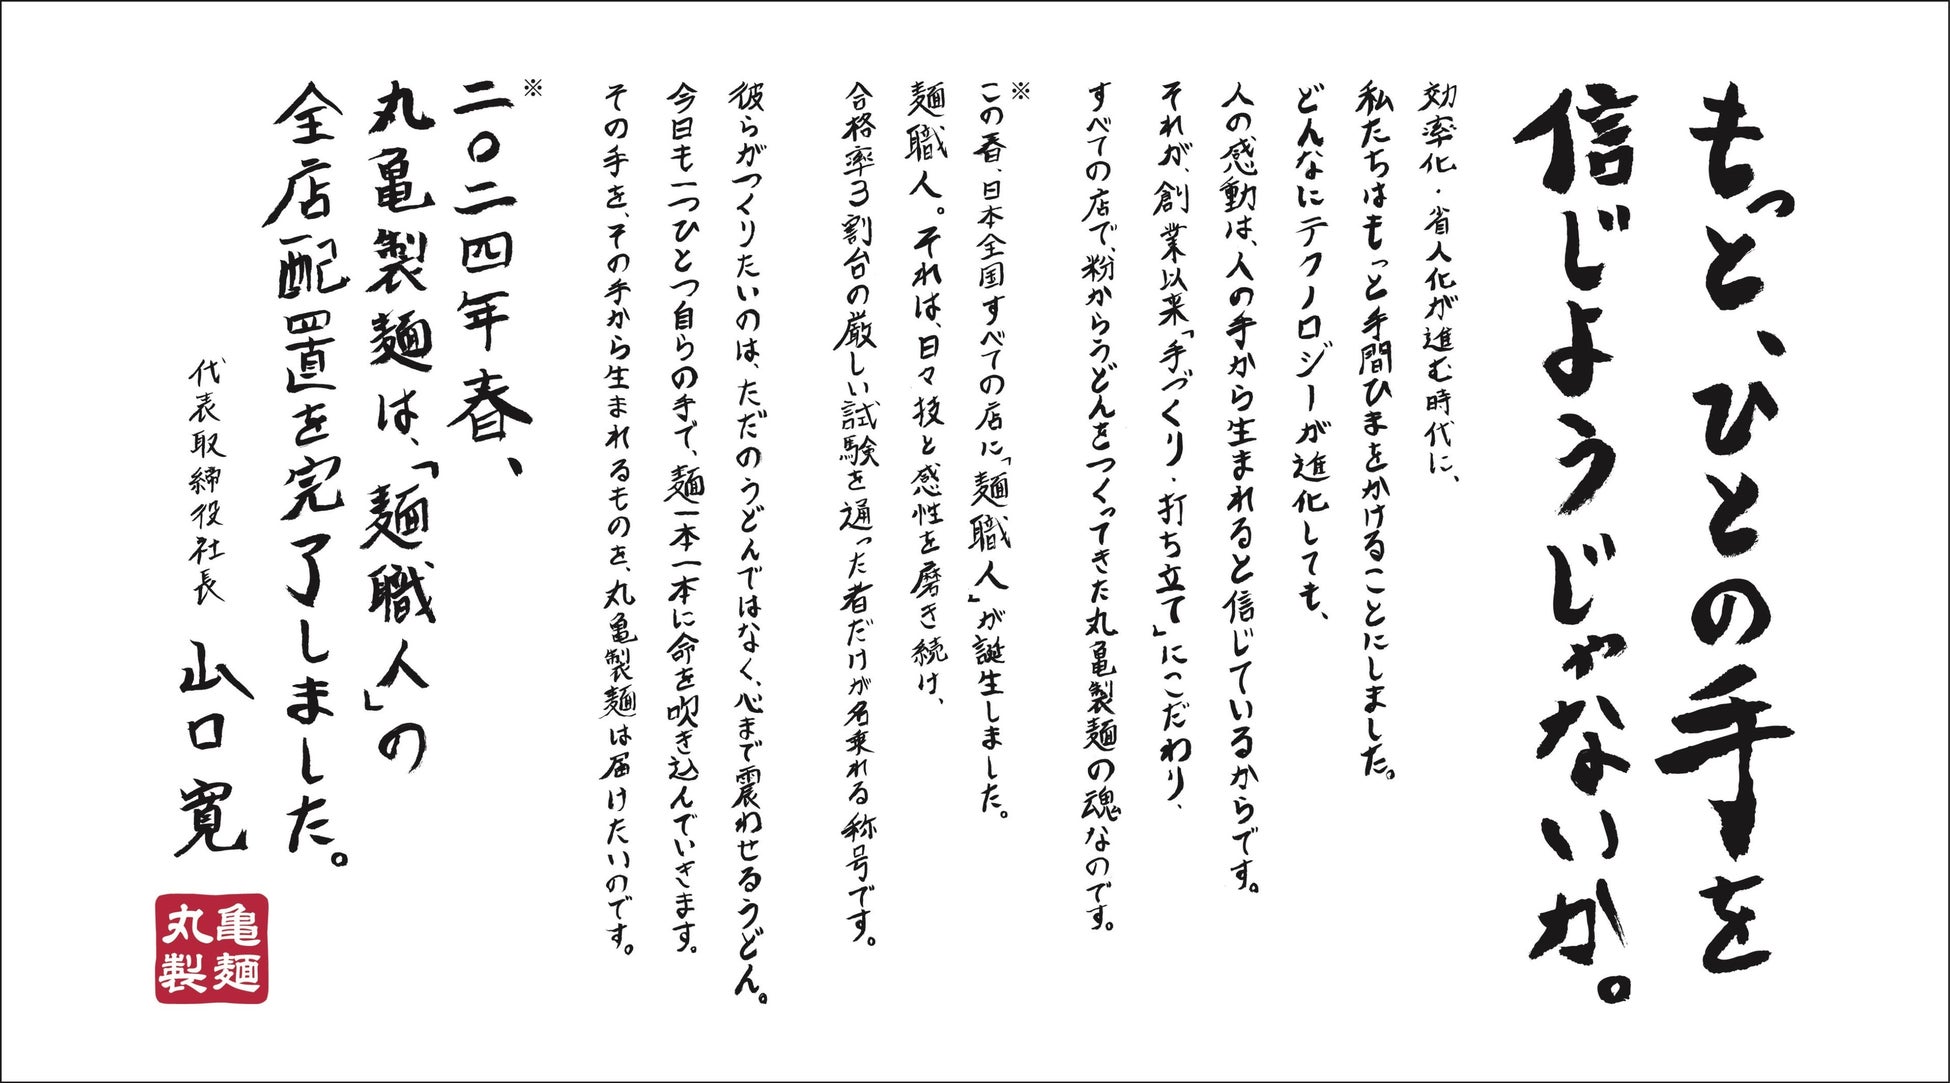 もっと、ひとの手を
信じようじゃないか。
効率化・省人化が進む時代に、
私たちはもっと手間ひまをかけることにしました。
どんなにテクノロジーが進化しても、
人の感動は、人の手から生まれると信じているからです。
それが、創業以来「手づくり・打ち立て」にこだわり、
すべての店で、粉からうどんをつくってきた丸亀製麺の魂なのです。
※
この春、日本全国すべての店に「麺職人」が誕生しました。
麺職人。それは、日々技と感性を磨き続け、
合格率3割台の厳しい試験を通った者だけが名乗れる称号です。
彼らがつくりたいのは、ただのうどんではなく、心まで震わせるうどん。
今日も一つひとつ自らの手で、麺一本一本に命を吹き込んでいきます。
その手を、その手から生まれるものを、丸亀製麺は届けたいのです。
※
二〇二四年春、
丸亀製麺は、「麺職人」の
全店配置を完了しました。
代表取締役社長 山口寛
亀麺
丸製